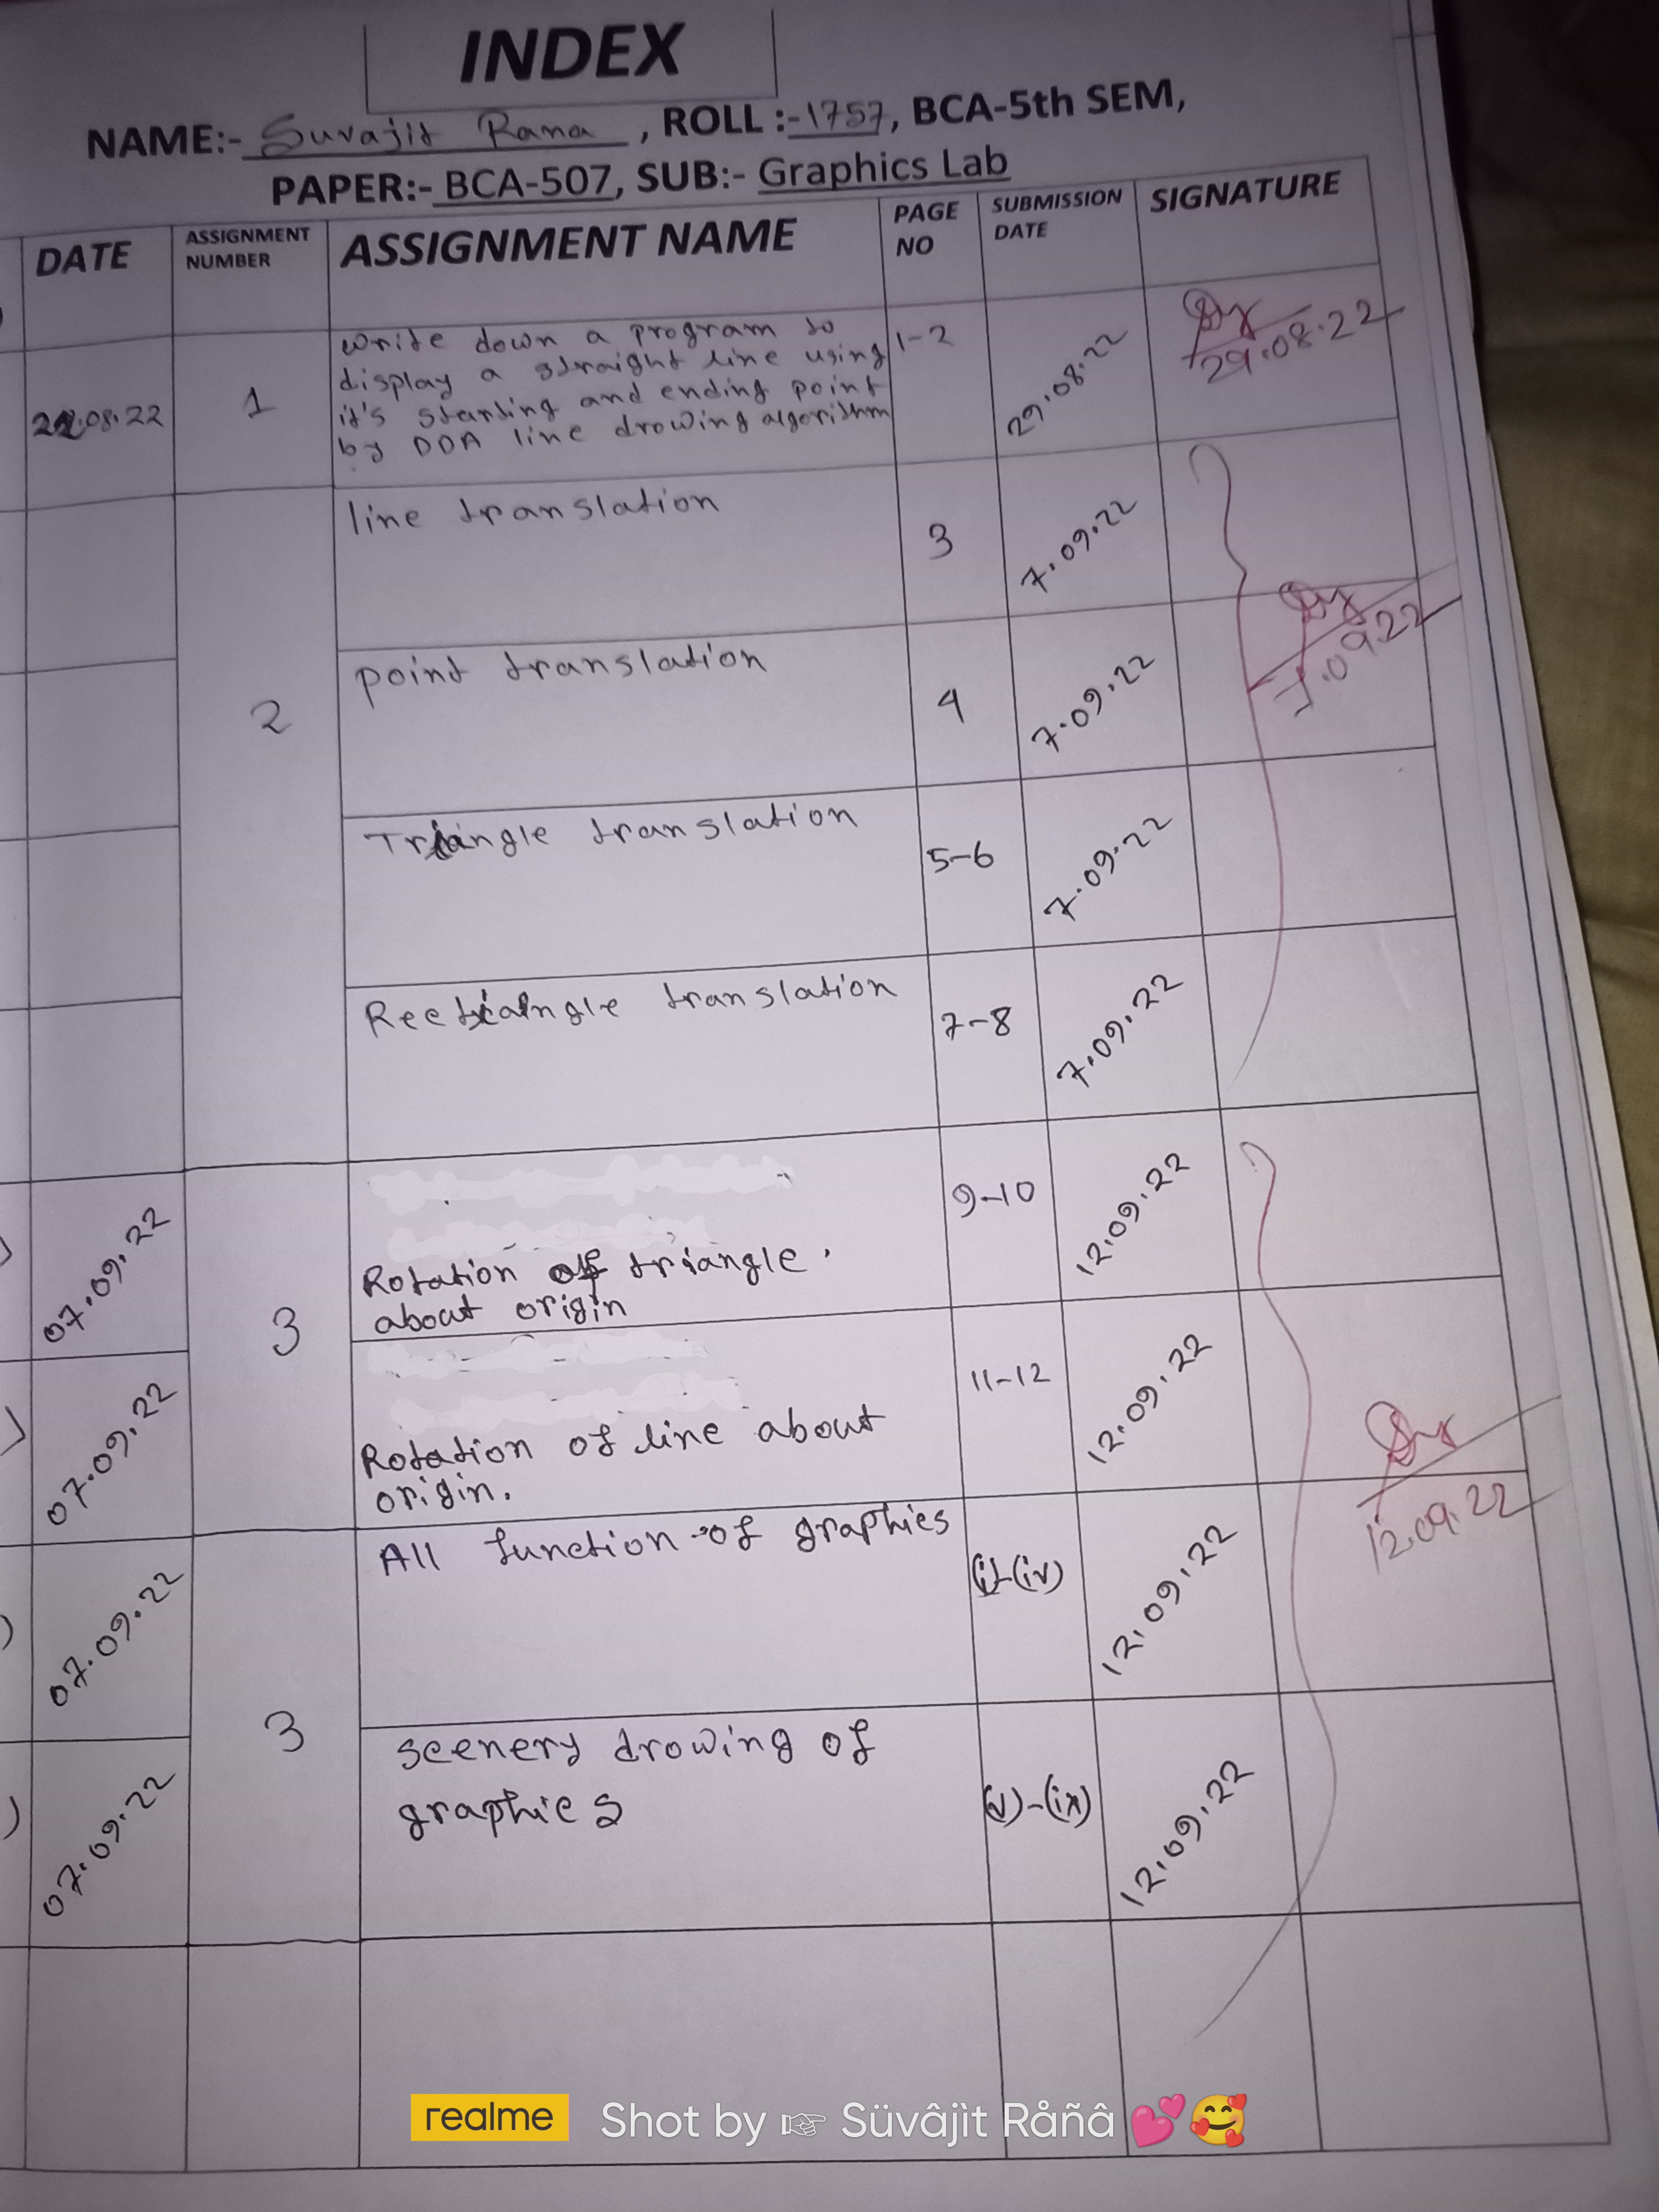 INDEX
NAME:- Suvajit Rana, ROLL :-1757, BCA-5th SEM,
PAPER:- BCA-507, SUB:- Graphics Lab
DATE ASSIGNMENT NUMBER ASSIGNMENT NAME PAGE NO SUBMISSION DATE SIGNATURE
write down a program to
display a straight line using
it's starting and ending point
by DDA line drowing algorithm
22.08.22 1 1-2 29.08.22 29.08.22
2
line translation 3 7.09.22
point translation 4 7.09.22 7.09.22
Triangle translation 5-6 7.09.22
Rectangle translation 7-8 7.09.22
07.09.22 3 9-10 12.09.22
Rotation of triangle.
about origin
07.09.22 11-12 12.09.22
Rotation of line about
origin.
07.09.22 3 All function of graphics (i)-(iv) 12.09.22 12.09.22
07.09.22 scenery drowing of (v)-(ix) 12.09.22
graphics
realme Shot by ☞ Süvâjìt Råñâ 💕🥰